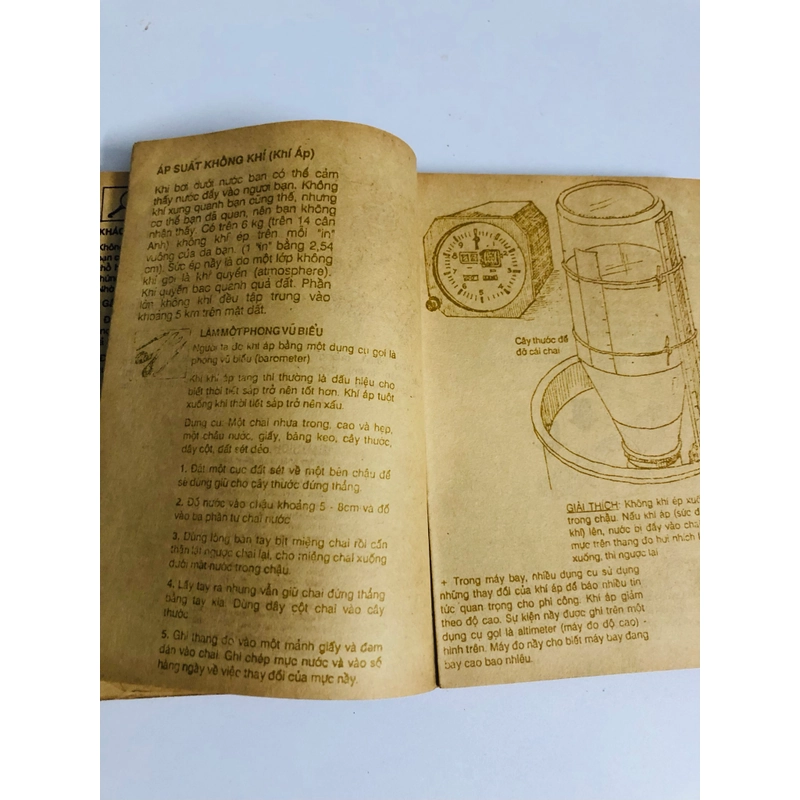 KHÁC
ÁP SUẤT KHÔNG KHÍ (Khí Áp)
Khi bơi dưới nước bạn có thể cảm
thấy nước đẩy vào người bạn. Không
khí xung quanh bạn cũng thế, nhưng
cơ thể bạn đã quen, nên bạn không
nhận thấy. Có trên 6 kg (trên 14 cân
Anh) không khí ép trên mỗi "in"
vuông của da bạn. (1 "in" bằng 2,54
cm). Sức ép nầy là do một lớp không
khí gọi là khí quyển (atmosphere).
Khí quyển bao quanh quả đất. Phần
lớn không khí đều tập trung vào
khoảng 5 km trên mặt đất.
LÀM MỘT PHONG VŨ BIỂU
Người ta đo khí áp bằng một dụng cụ gọi là
phong vũ biểu (barometer)
Khi khí áp tăng thì thường là dấu hiệu cho
biết thời tiết sắp trở nên tốt hơn. Khí áp tuột
xuống khi thời tiết sắp trở nên xấu.
Dụng cụ: Một chai nhựa trong, cao và hẹp,
một chậu nước, giấy, băng keo, cây thước,
dây cột, đất sét dẻo.
1. Đặt một cục đất sét về một bên chậu để
sẽ dùng giữ cho cây thước đứng thẳng.
2. Đổ nước vào chậu khoảng 5 - 8cm và đổ
vào ba phần tư chai nước
3. Dùng lòng bàn tay bịt miệng chai rồi cẩn
thận lật ngược chai lại, cho miệng chai xuống
dưới mặt nước trong chậu.
4. Lấy tay ra nhưng vẫn giữ chai đứng thẳng
bằng tay kia. Dùng dây cột chai vào cây
thước
5. Ghi thang đo vào một mảnh giấy và đem
dán vào chai. Ghi chép mực nước và vào sổ
hàng ngày về việc thay đổi của mực nầy.
Cây thước để
đỡ cái chai
GIẢI THÍCH: Không khí ép xuố
trong chậu. Nếu khí áp (sức đ
khí) lên, nước bị đẩy vào cha
mực trên thang đo hơi nhích l
xuống, thì ngược lại
+ Trong máy bay, nhiều dụng cụ sử dụng
những thay đổi của khí áp để báo nhiều tin
tức quan trọng cho phi công. Khí áp giảm
theo độ cao. Sự kiện nầy được ghi trên một
dụng cụ gọi là altimeter (máy đo độ cao) -
hình trên. Máy đo nầy cho biết máy bay đang
bay cao bao nhiêu.